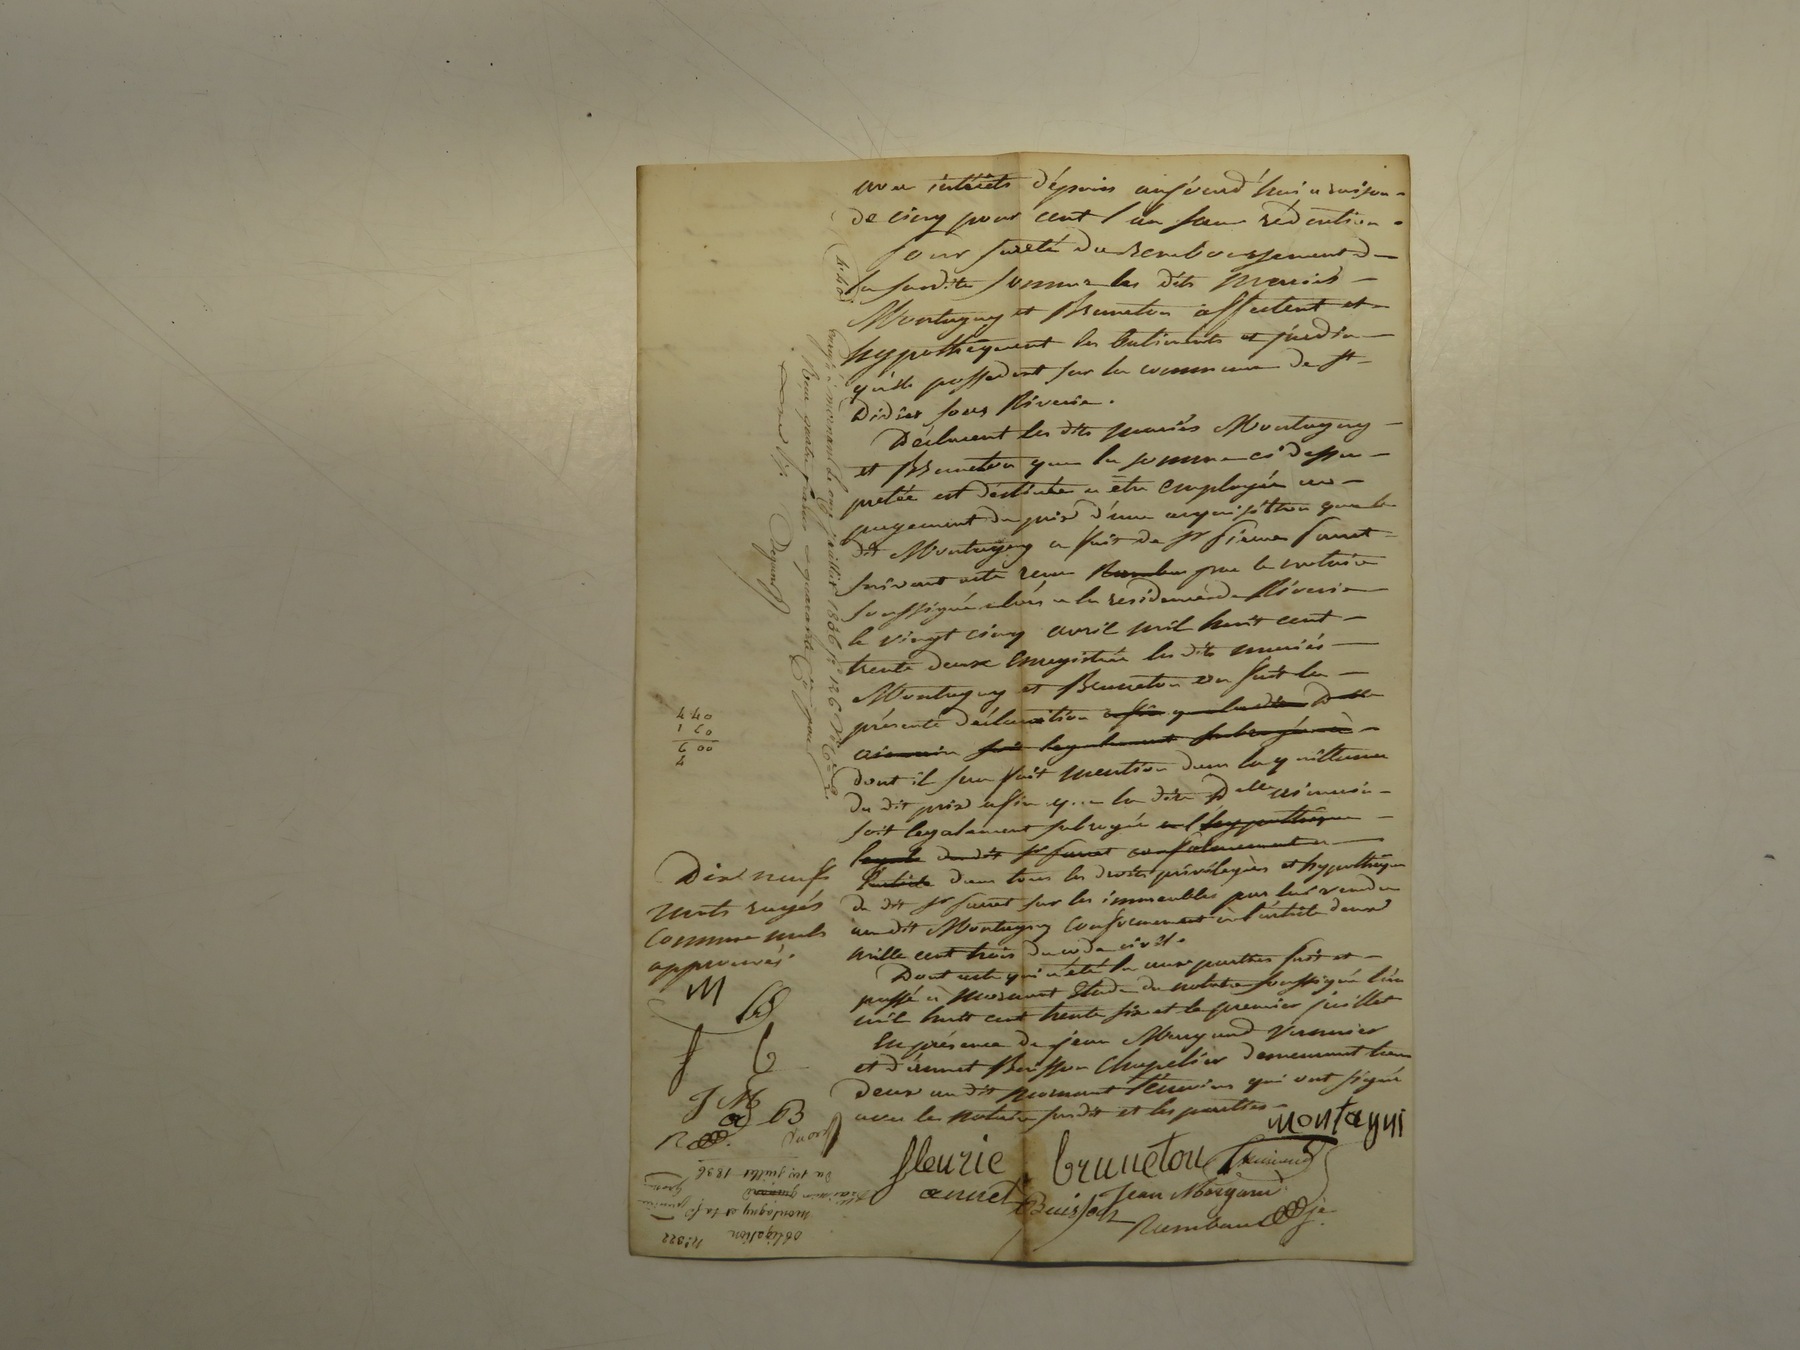 avec intérêts dépuis aujourd'hui a raison
de cinq pour cent l'an sans rédention.
Pour sureté du remboursement de
la sudite somme les dits mariés
Montagny et Bruneton affectent et
hypothèquent les batiments et jardin
qu'ils possedent sur la commune de St
Didier sous Riverie.
Déclarent les dits mariés Montagny
et Bruneton que la somme ci dessus
pretée est déstinée a être employée au
payement du prix d'une acquisition que le
dit Montagny a fait de Sr Pierre
suivant acte recu par le notaire
soussigné alors a la residence de Riverie
le vingt cinq avril mil huit cent
trente deux enregistrée les dits mariés
Montagny et Bruneton on fait la
présente déclaration afin que la dite Dlle
soit legalement subrogée
dont il sera fait mention dans la quittance
du dit prix afin que la dite Dlle
soit legalement subrogée a l'hypothèque
legale du dit Sr conformement a
l'article dans tous les droits privilèges et hypothèques
du dit Sr sur les immeubles par lui vendus
au dit Montagny conformement à l'article deux
mille cent trois du code civil.
Dont acte qui a été lu aux parties fait et
passé à Mornant Etude du notaire soussigné l'an
mil huit cent trente six et le premier juillet
En présence de jean Murgand
et d'annet Buisson Chapelier demeurant tous
deux au dit mornant témoins qui ont signé
avec le notaire susdit et les parties
Dix neuf
mots rayés
comme nuls
approuvés.
M B
f C
J M
a B
R
montagni
fleurie bruneton
annet Buisson Jean Murgand
Rambaud
440
enregistré à mornant le juillet 1836 fo 126
Recu quatre francs quarante Cmes
440
130
Du 1er juillet 1836
montagny et sa fe
obligation
No 322